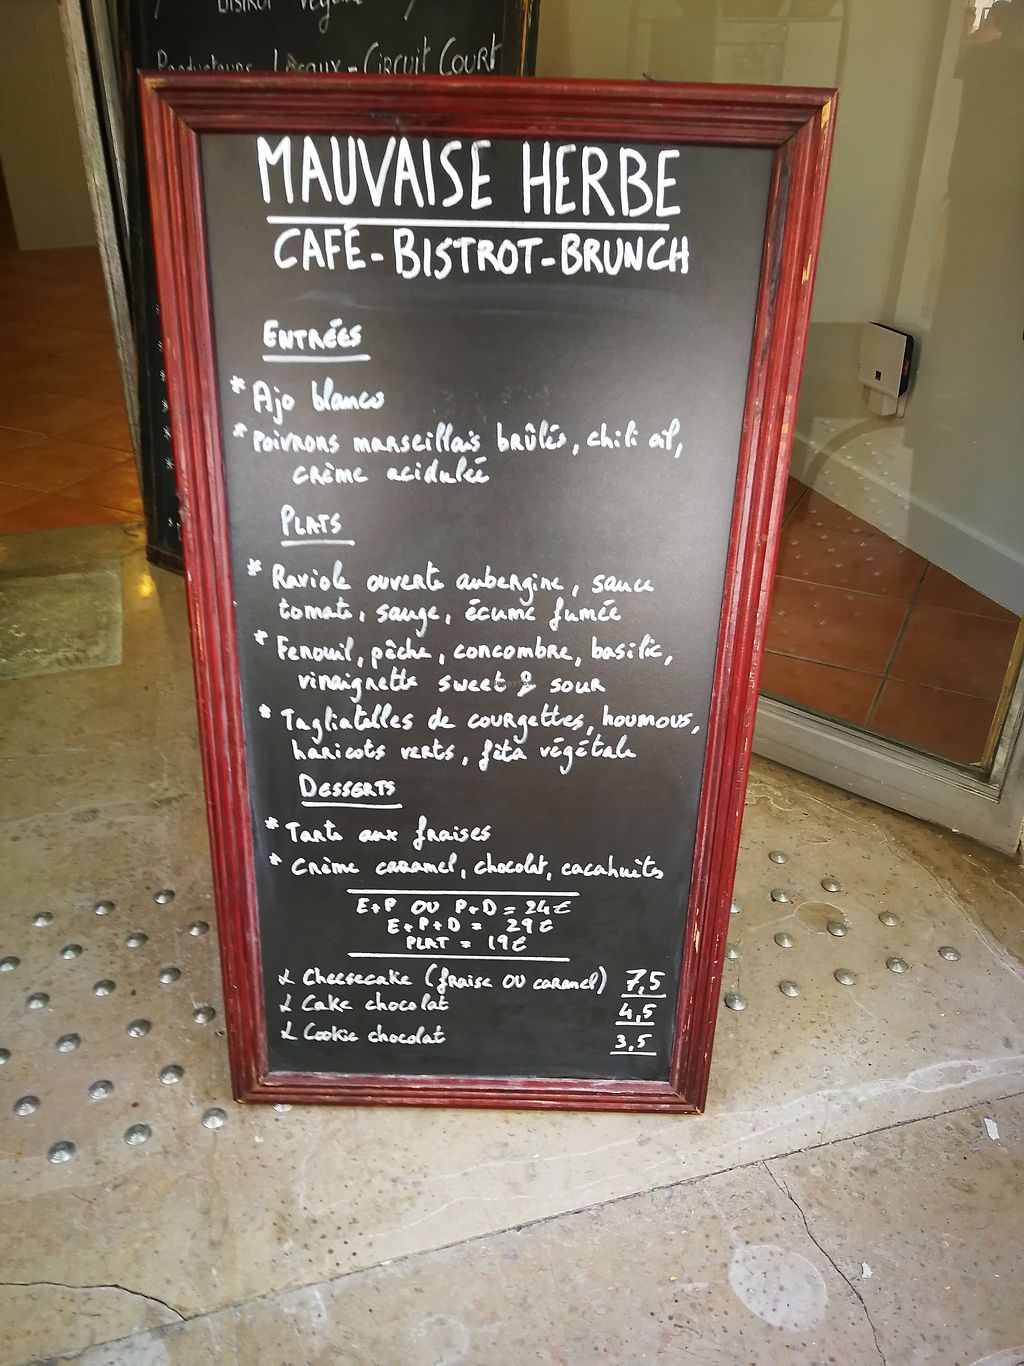 BISTROT Végétal
Producteurs Locaux - CIRCUIT COURT
MAUVAISE HERBE
CAFÉ-BISTROT-BRUNCH
ENTRÉES
* Ajo blanco
* Poivrons marseillais brûlés, chili oil,
crème acidulée
PLATS
* Raviole ouverte aubergine, sauce
tomate, sauge, écume fumée
* Fenouil, pêche, concombre, basilic,
vinaigrette sweet & sour
* Tagliatelles de courgettes, houmous,
haricots verts, fêta végétale
DESSERTS
* Tarte aux fraises
* Crème caramel, chocolat, cacahuètes
E+P OU P+D = 24€
E+P+D = 29€
PLAT = 19€
Cheesecake (fraise OU caramel) 7,5
Cake chocolat 4,5
Cookie chocolat 3,5